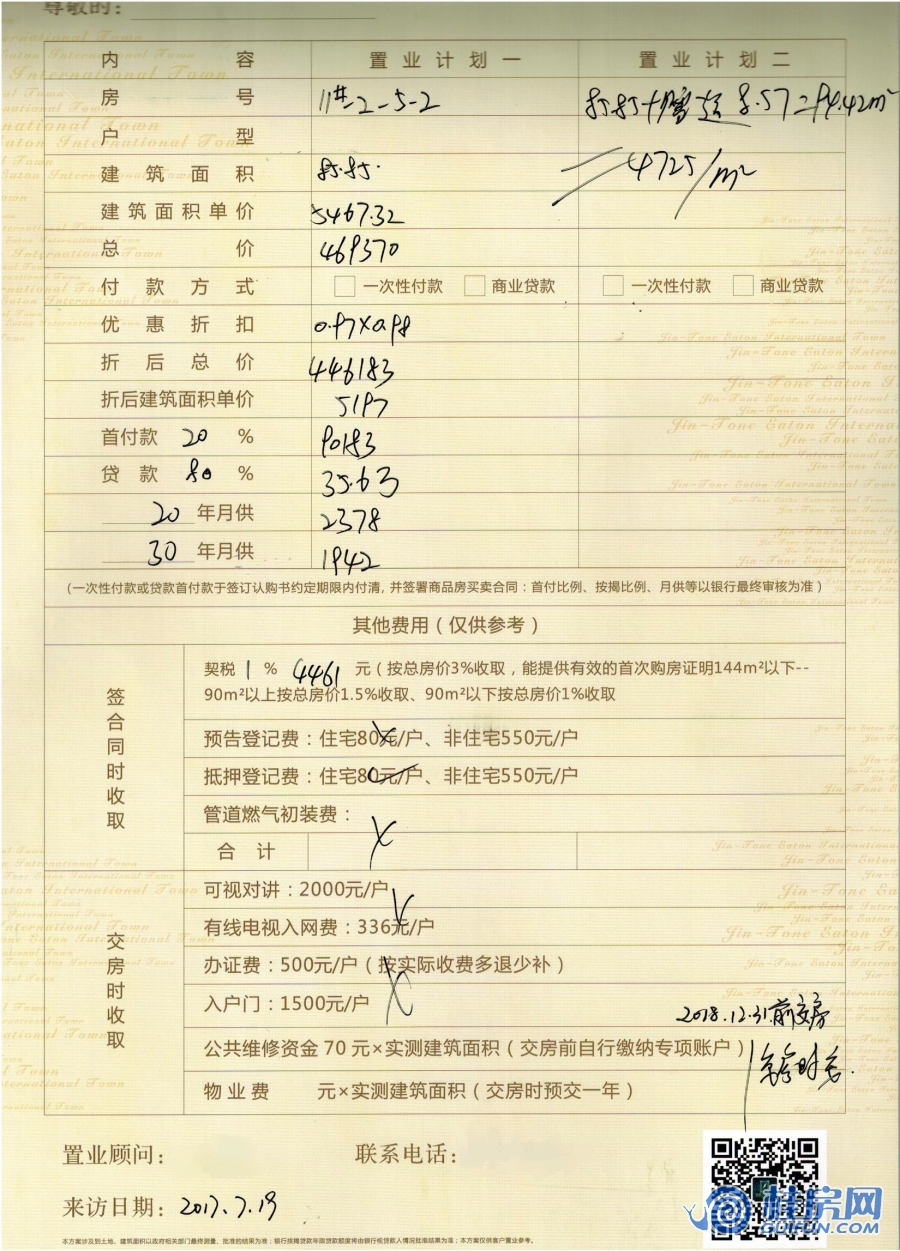 尊敬的：
内容 置业计划一 置业计划二
房号 11#-2-5-2 85.85+ 8.57=94.42m²
户型
建筑面积 85.85 = 4725/m²
建筑面积单价 5467.32
总价 469370
付款方式 □一次性付款 □商业贷款 □一次性付款 □商业贷款
优惠折扣 0.97×0.98
折后总价 446183
折后建筑面积单价 5197
首付款 20 % 90183
贷款 80 % 35.6万
20 年月供 2378
30 年月供 1942
（一次性付款或贷款首付款于签订认购书约定期限内付清，并签署商品房买卖合同：首付比例、按揭比例、月供等以银行最终审核为准）
其他费用（仅供参考）
签合同时收取
契税 1 % 4461 元（按总房价3%收取，能提供有效的首次购房证明144m²以下--
90m²以上按总房价1.5%收取、90m²以下按总房价1%收取
预告登记费：住宅80元/户、非住宅550元/户
抵押登记费：住宅80元/户、非住宅550元/户
管道燃气初装费：
合计
交房时收取
可视对讲：2000元/户
有线电视入网费：336元/户
办证费：500元/户（按实际收费多退少补）
入户门：1500元/户
2018.12.31前交房
公共维修资金70元×实测建筑面积（交房前自行缴纳专项账户）
物业费 元×实测建筑面积（交房时预交一年）
置业顾问： 联系电话：
来访日期：2017.7.19
桂房网
GUIFUN.COM
本方案涉及到土地、建筑面积以政府相关部门最终测量、批准的结果为准；银行按揭贷款年限贷款额度将由银行视贷款人情况批准结果为准；本方案仅供客户置业参考。